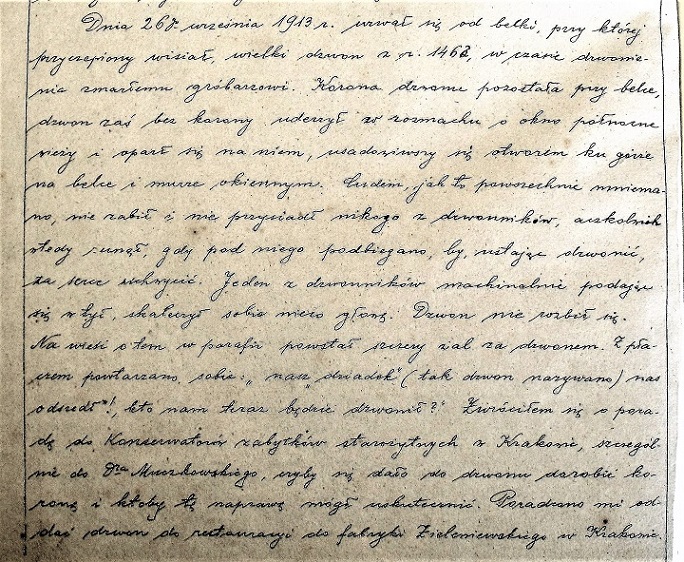 Dnia 26g. września 1913 r. urwał się od belki, przy której
przyczepiony wisiał, wielki dzwon z r. 1462, w czasie dzwonie-
nia zmarłemu grobarzowi. Korona dzwonu pozostała przy belce,
dzwon zaś bez korony uderzył w rozmachu o okno północne
wieży i oparł się na niem, usadowiwszy się otworem ku górze
na belce i murze okiennym. Cudem, jak to powszechnie mniema-
no, nie zabił i nie przysiadł nikogo z dzwonników, aczkolwiek
wtedy runął, gdy pod niego podbiegano, by, ustając dzwonić,
za serce uchwycić. Jeden z dzwonników machinalnie podając
się w tył, skaleczył sobie nieco głowę. Dzwon nie rozbił się.
Na wieść o tem w parafii powstał szczery żal za dzwonem. Z pła-
czem powtarzano sobie: „nasz „dziadek" (tak dzwon nazywano) nas
odszedł"!, kto nam teraz będzie dzwonić?" Zwróciłem się o pora-
dę do Konserwatorów zabytków starożytnych w Krakowie, szczegól-
nie do Dra Muczkowskiego, czyby się dało do dzwonu dorobić ko-
ronę i ktoby tę naprawę mógł uskutecznić. Poradzono mi od-
dać dzwon do restauracji do fabryki Zieleniewskiego w Krakowie.